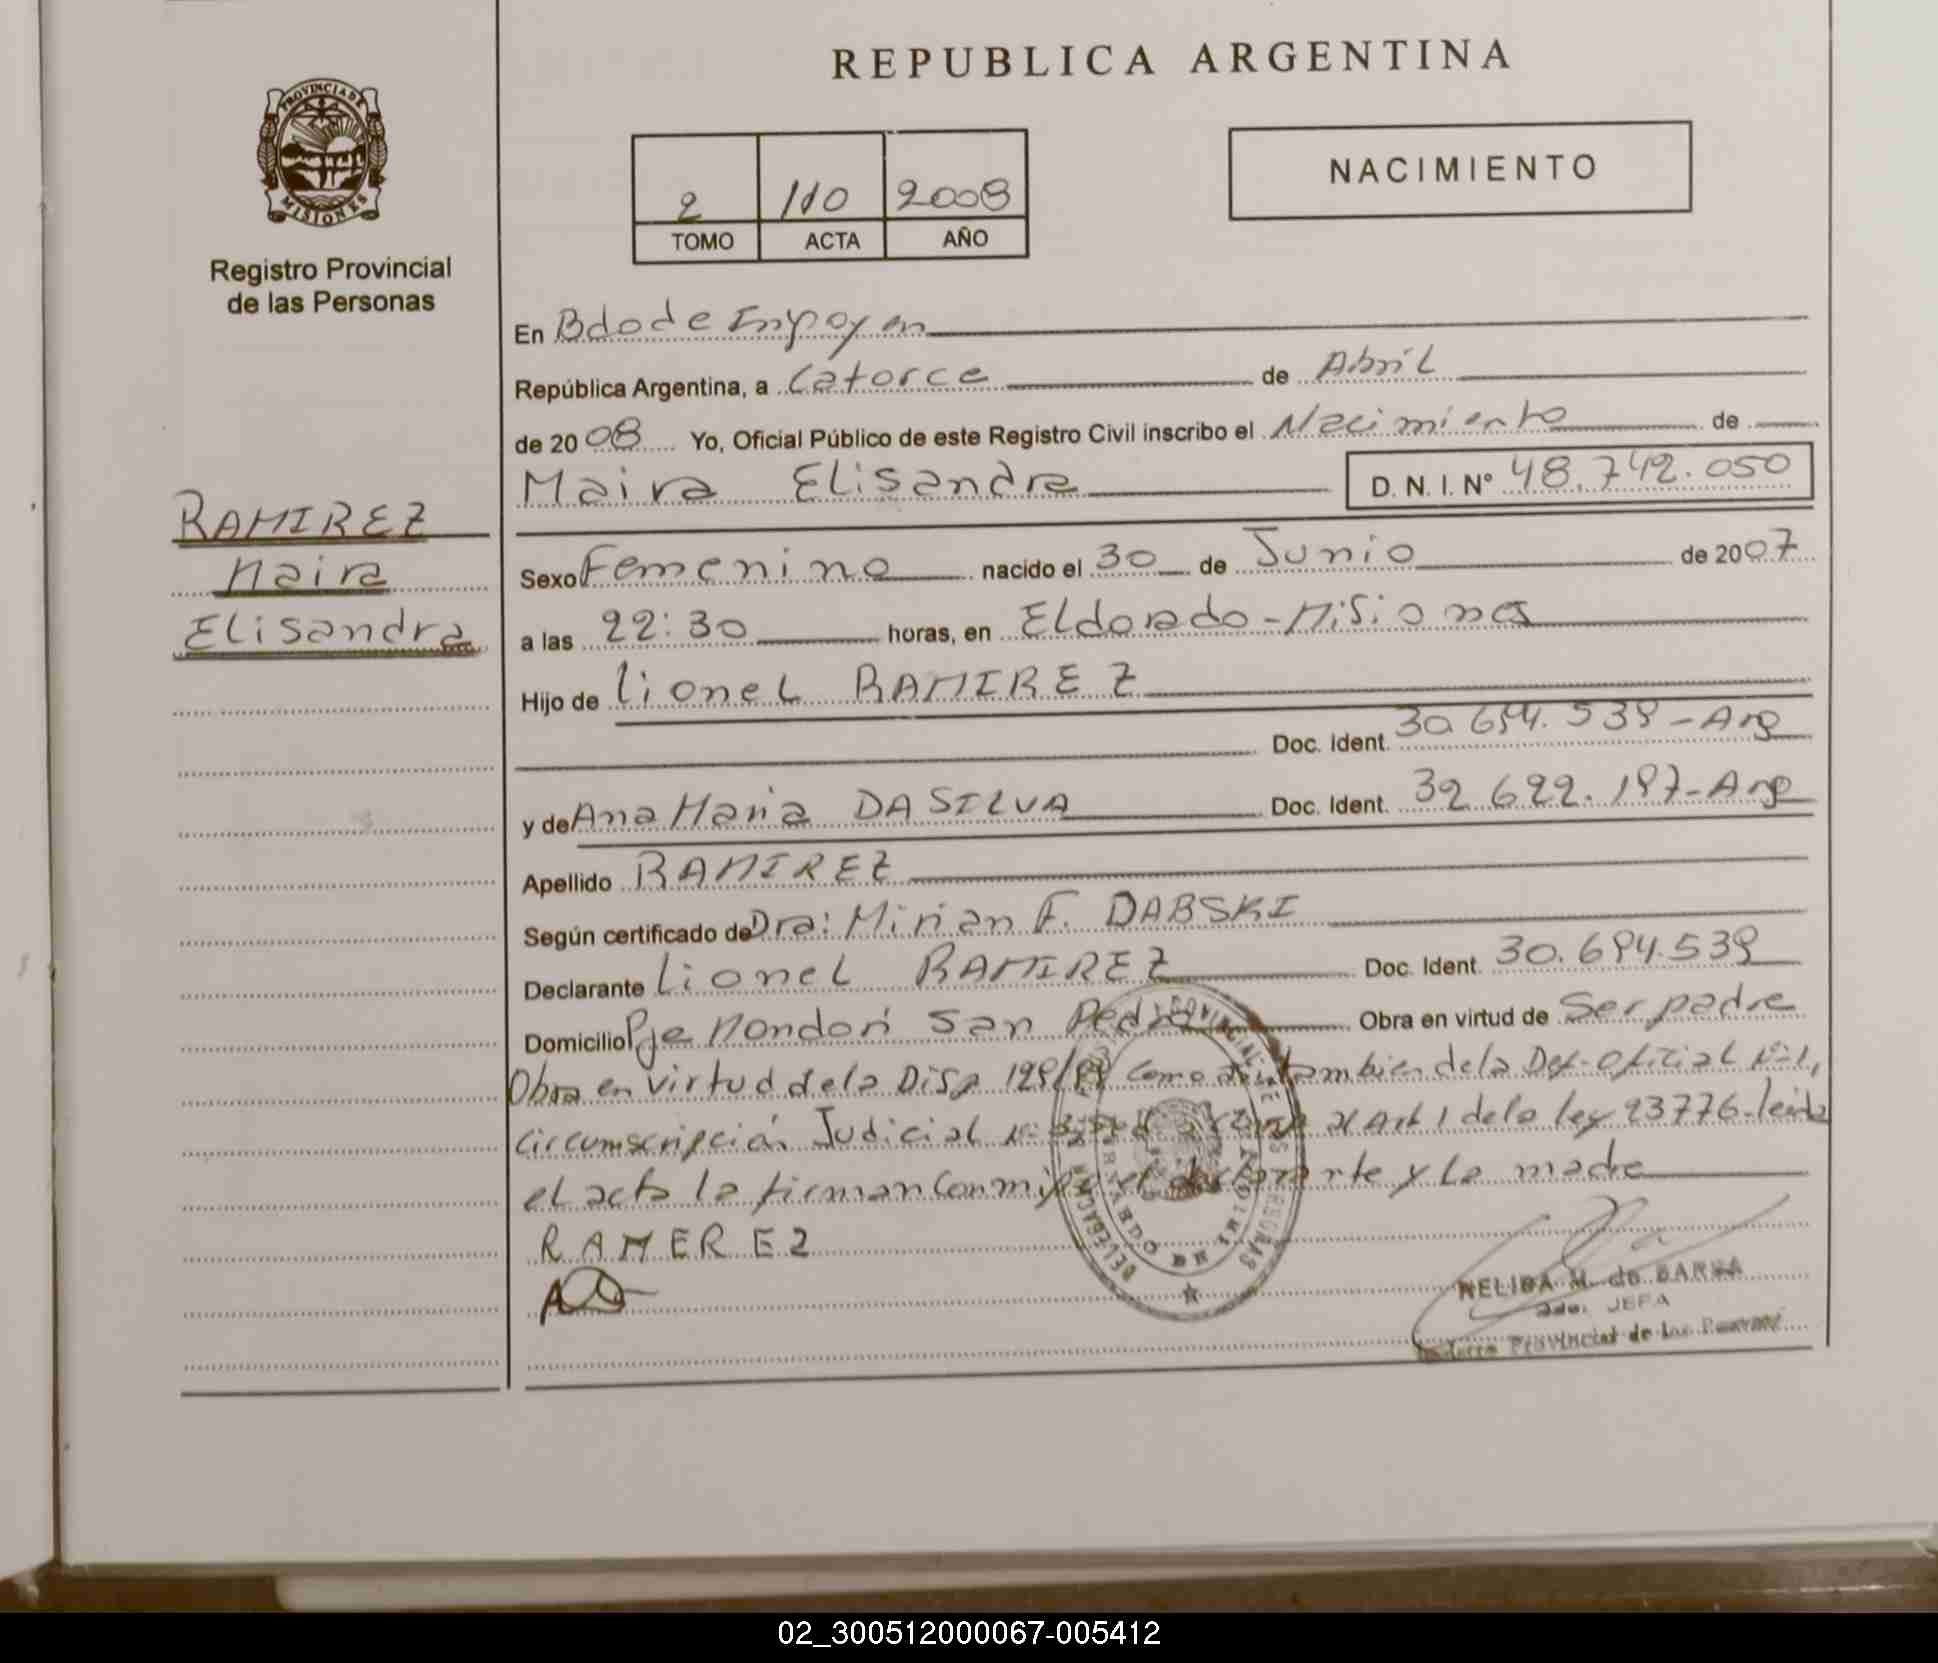 REPUBLICA ARGENTINA
PROVINCIA DE
MISIONES
Registro Provincial
de las Personas
2 110 2008
TOMO ACTA AÑO
NACIMIENTO
En Bdo de Irigoyen
República Argentina, a Catorce de Abril
de 2008 Yo, Oficial Público de este Registro Civil inscribo el Nacimiento de
Maira Elisandra D. N. I. Nº 48.742.050
RAMIREZ
Maira
Elisandra
Sexo Femenino nacido el 30 de Junio de 2007
a las 22:30 horas, en Eldorado - Misiones
Hijo de Lionel RAMIREZ
Doc. Ident. 30.694.539 - Arg
y de Ana Maria DA SILVA Doc. Ident. 32.622.197 - Arg
Apellido RAMIREZ
Según certificado de Dra: Mirian F. DABSKI
Declarante Lionel RAMIREZ Doc. Ident. 30.694.539
Domicilio Pje Mondori San Pedro Obra en virtud de Ser padre
Obra en virtud de la Disp 129/ Como tambien de la Def. oficial Nº 1,
Circunscripción Judicial al Art 1 de la ley 23776 - leida
el acta la firman Conmigo el declarante y la madre
RAMEREZ
NELIDA M. de
JEFA
Provincial de las Personas
02_300512000067-005412